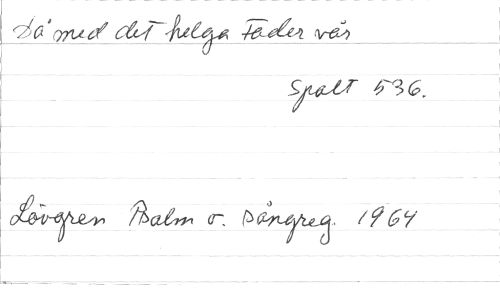 Då med det helga Fader vår
Spalt 536.
Lövgren Psalm o. sångreg. 1964